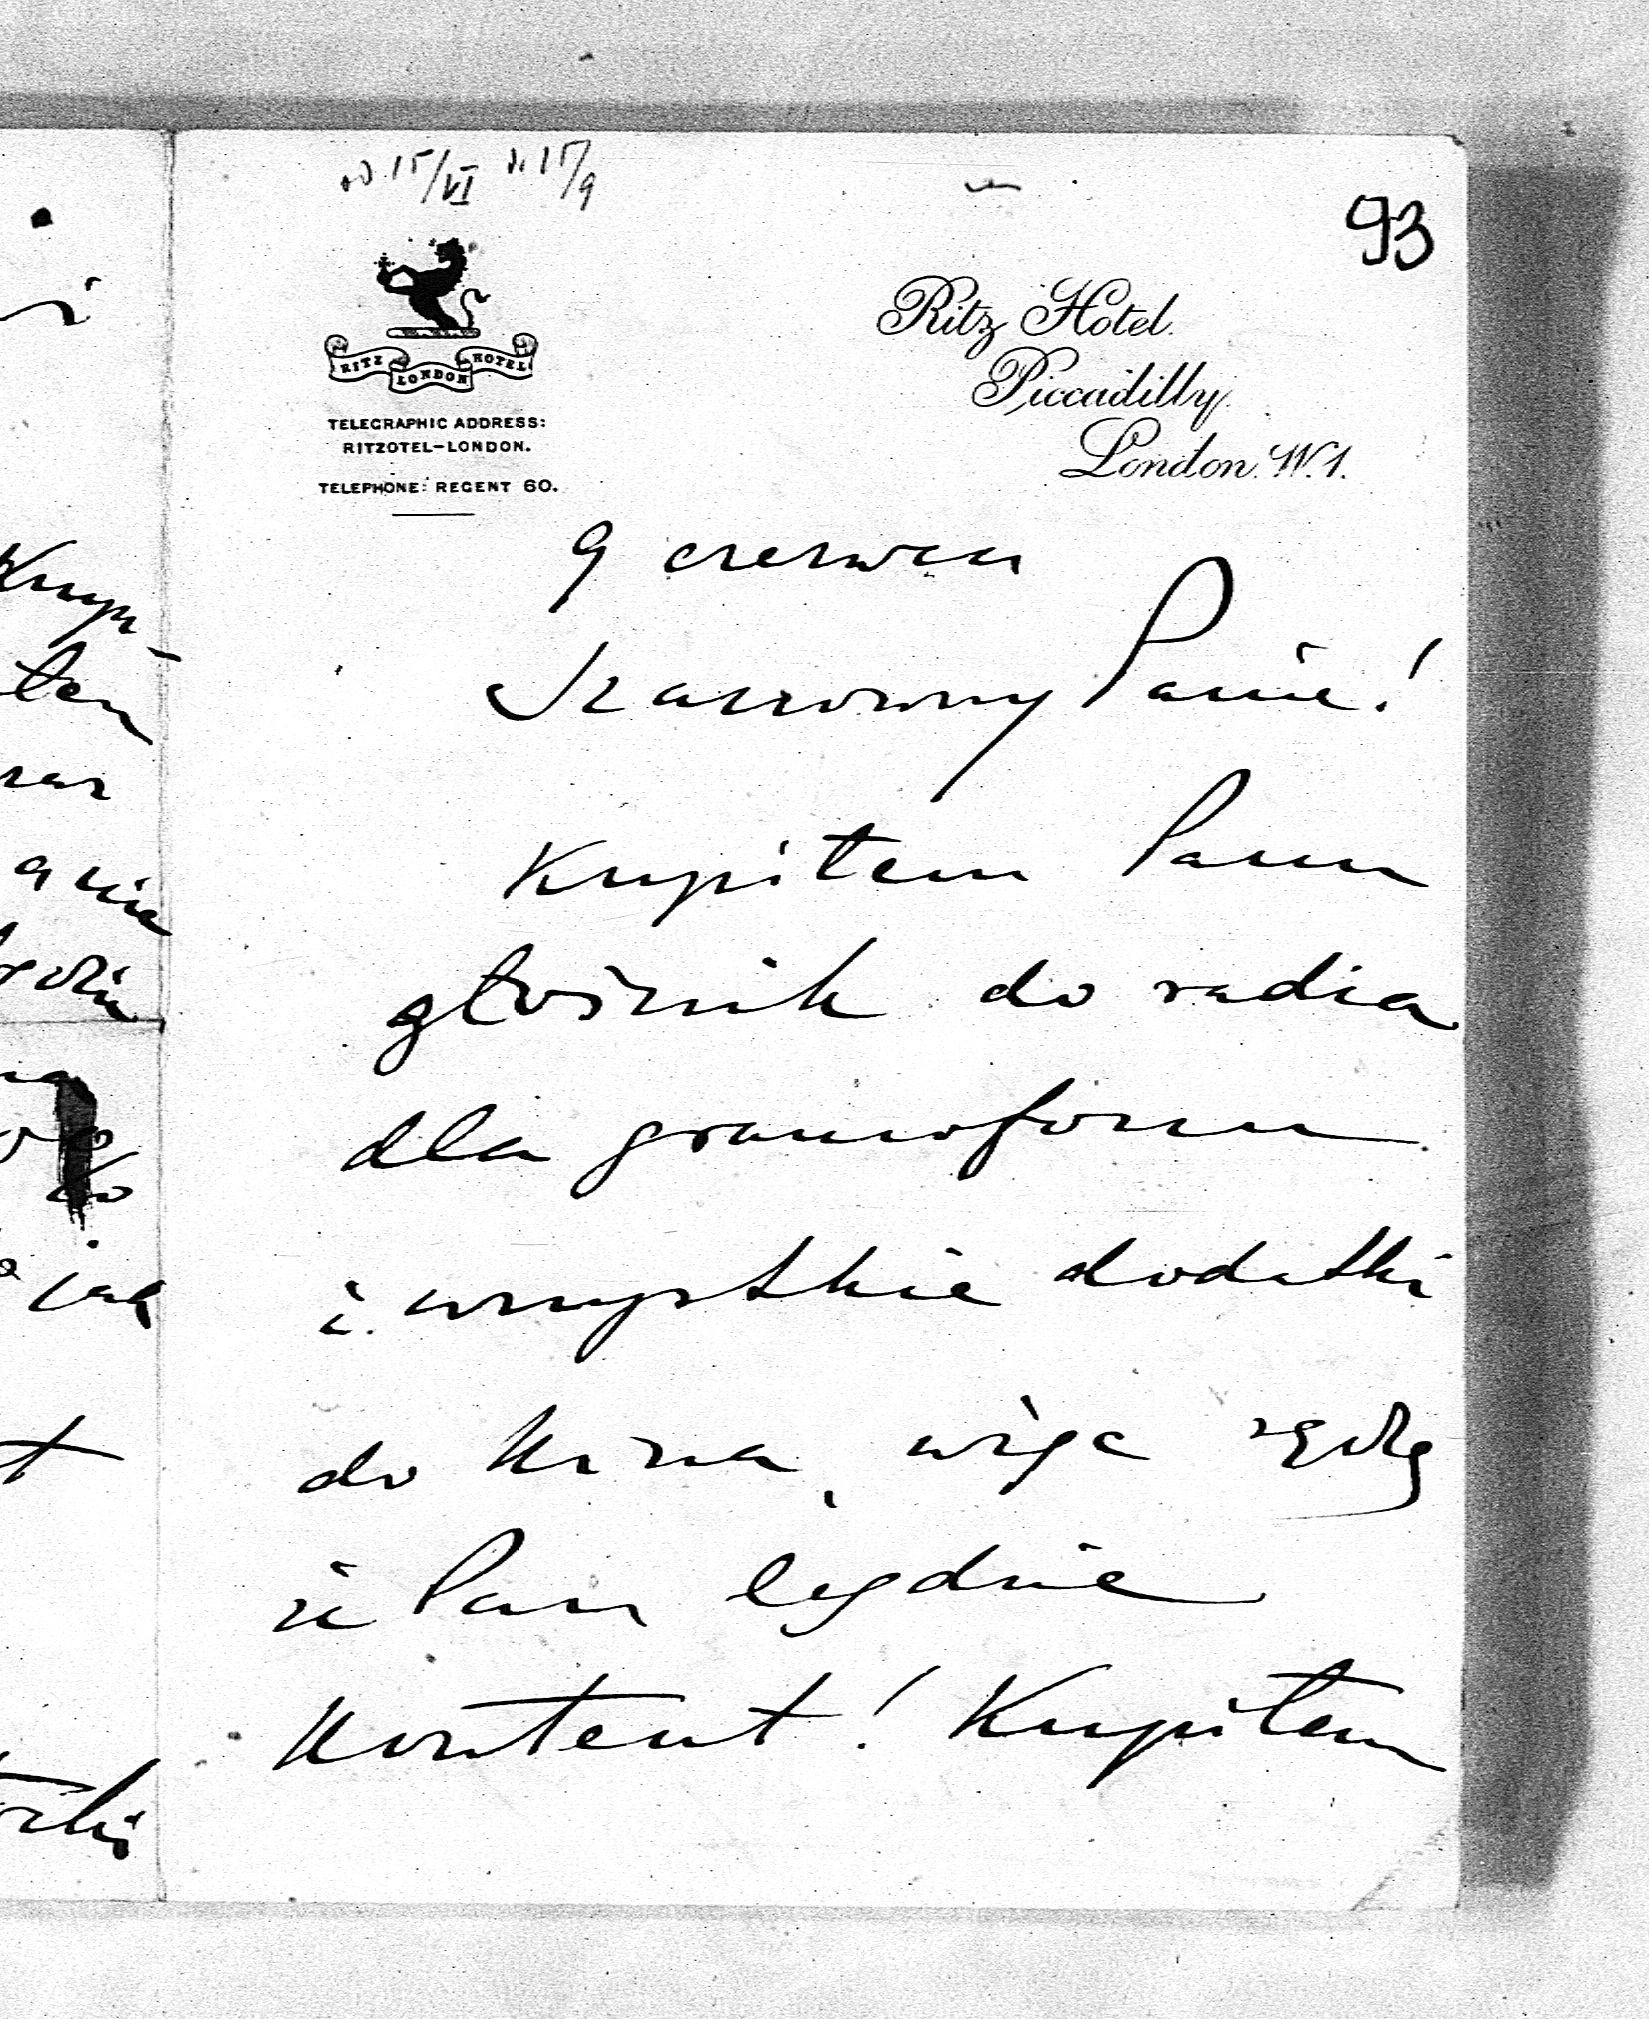 od 15/VI d. 15/9
93
RITZ LONDON HOTEL
TELEGRAPHIC ADDRESS:
RITZOTEL-LONDON.
TELEPHONE: REGENT 60.
Ritz Hotel
Piccadilly
London. W.1.
9 czerwca
Szanowny Panie!
Kupiłem Panu
głośnik do radia
dla gramofonu
i wszystkie dodatki
do kina, więc sądzę
że Pan będzie
kontent! Kupiłem
i
Kupi-
łem
raz
do
jak
t